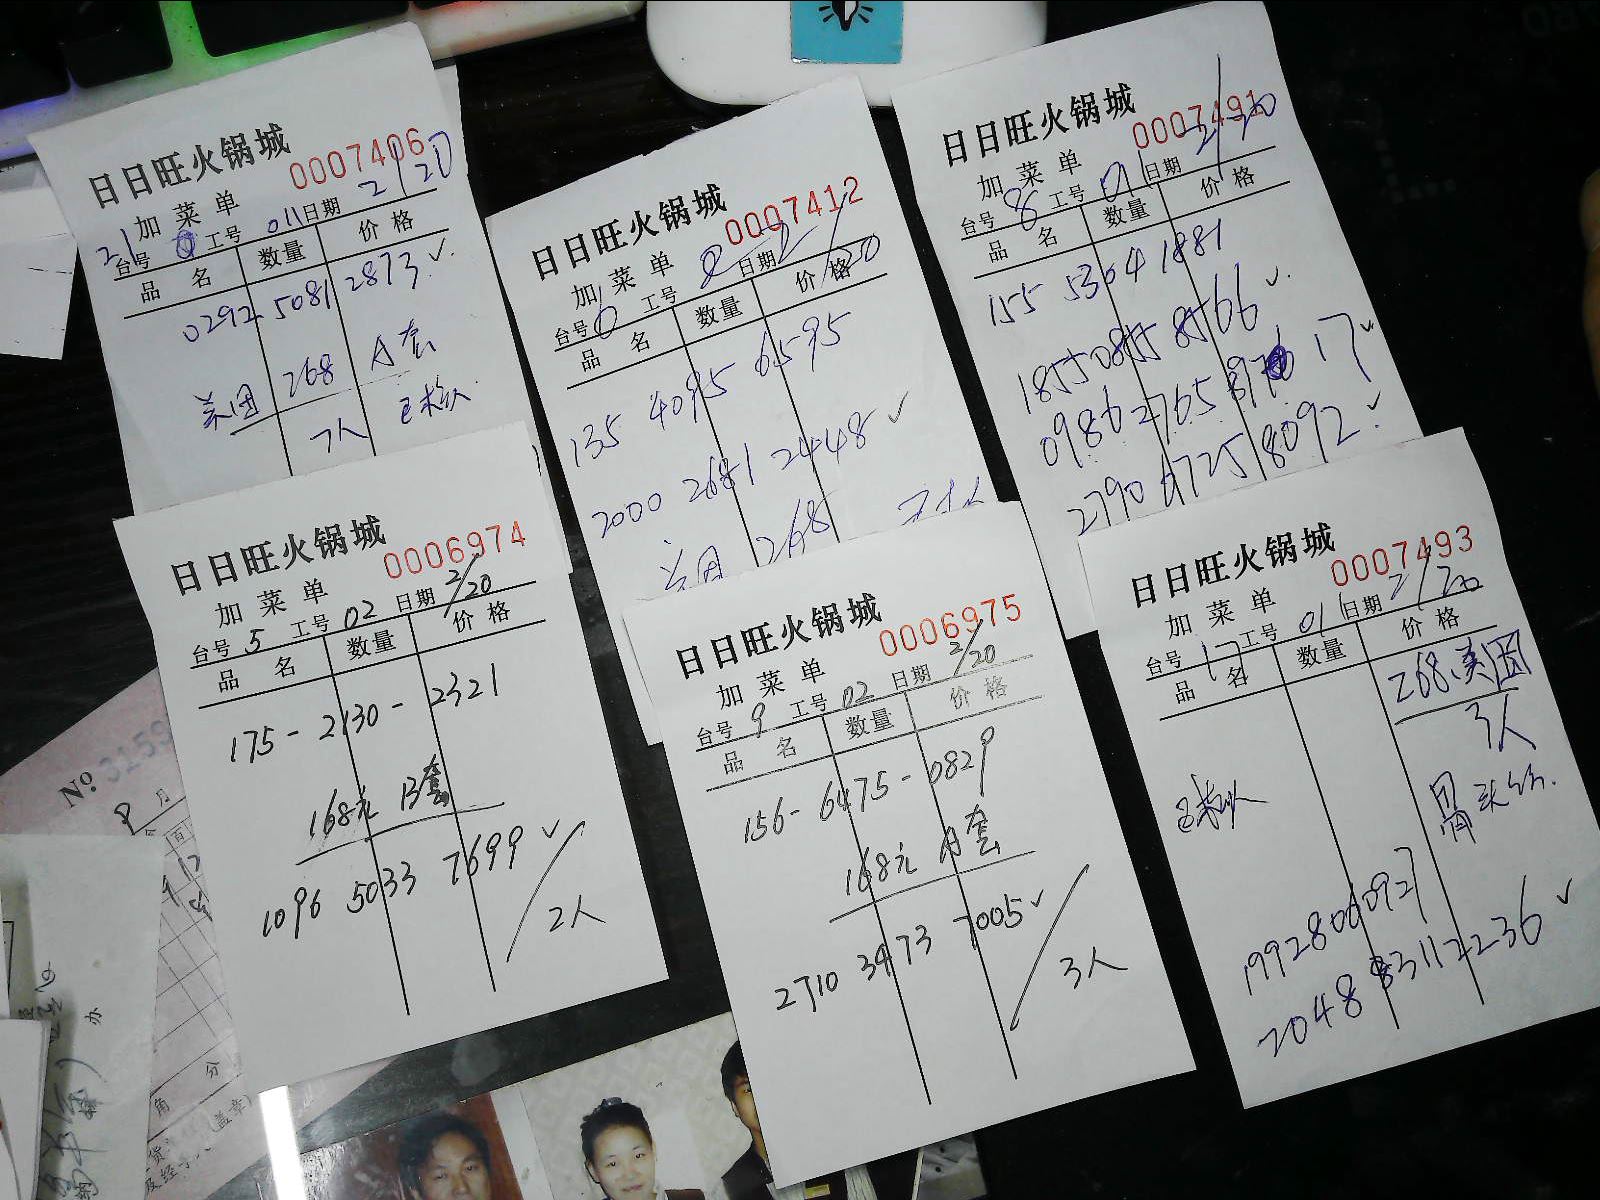 日日旺火锅城
0007406
加菜单
2/20
台号 工号 011 日期
品名 数量 价格
0292 5081 2873 ✓
美团 268 A套
7人 已核队
日日旺火锅城
0007412
加菜单
台号 6 工号 日期
品名 数量 价格
135 4095 6595
2000 2681 2448 ✓
美团 268
日日旺火锅城
0007491
加菜单
2/20
台号 8 工号 01 日期
品名 数量 价格
155 5304 1881
1855 0855 8566 ✓
0986 2765 17 ✓
2790 6725 8092 ✓
日日旺火锅城
0006974
加菜单
台号 5 工号 02 日期 2/20
品名 数量 价格
175-2130-2321
168元 B套
1096 5033 7699 ✓
2人
日日旺火锅城
0006975
加菜单
台号 9 工号 02 日期 2/20
品名 数量 价格
156-6475-0829
168元 A套
2710 3473 7005 ✓
3人
日日旺火锅城
0007493
加菜单
台号 17 工号 01 日期 2/20
品名 数量 价格
268美团
3人
19928060927
2048 83112236 ✓
No
月
角 分
(盖章)
办